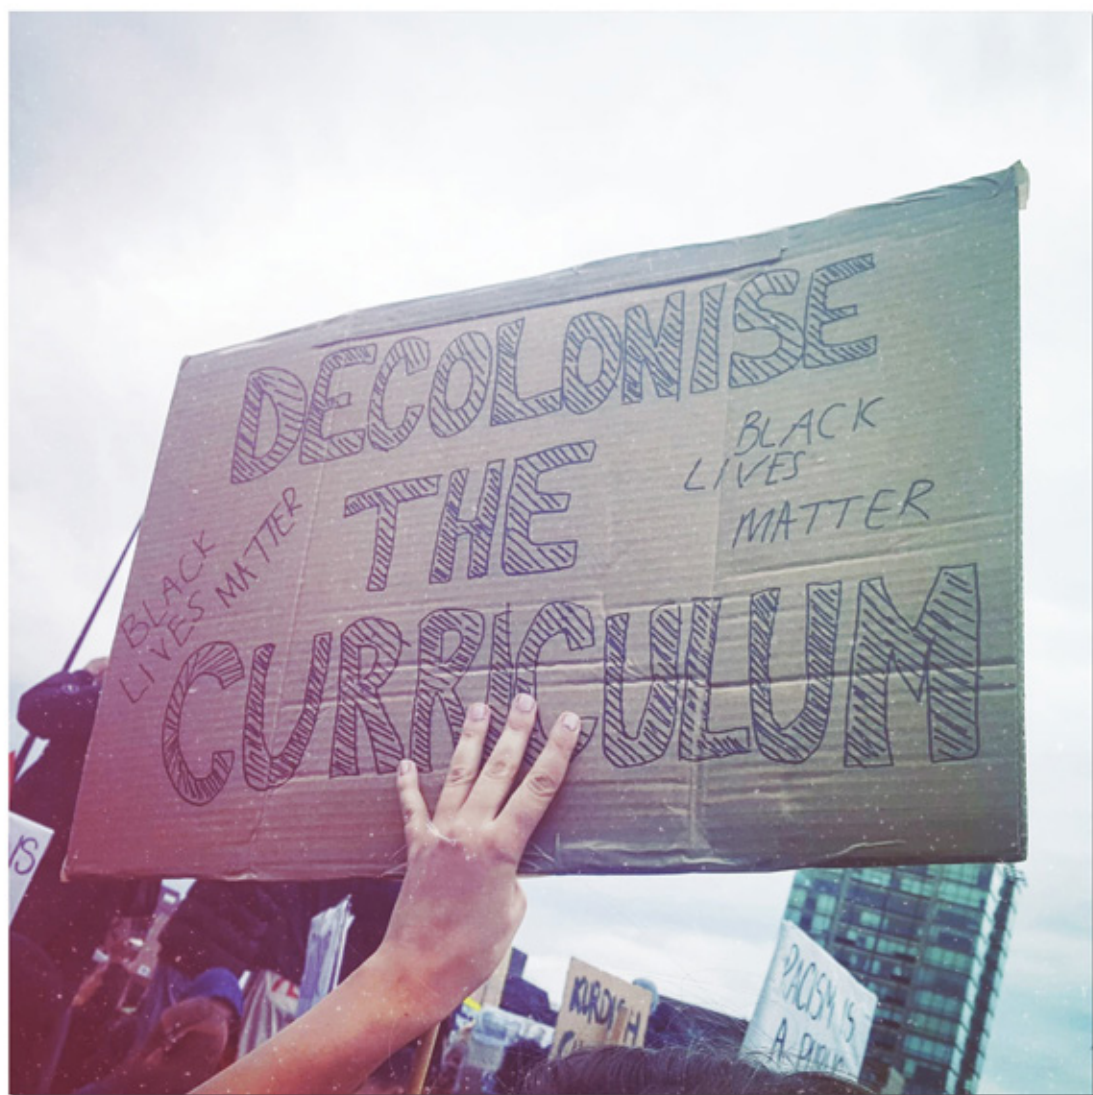 DECOLONISE
THE
CURRICULUM
BLACK
LIVES
MATTER
BLACK
LIVES MATTER
KURDISH
RACISM IS
A PUBLIC
IS